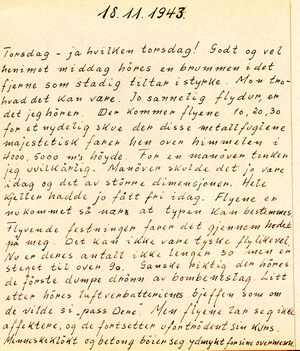 18.11.1943.
Torsdag - ja hvilken torsdag! Godt og vel
henimot middag höres en brummen i det
fjerne som stadig tiltar i styrke. Mon tro
hvad det kan være. Jo sannelig flydur, er
det jeg hören. Der kommer flyene 10, 20, 30
for et nydelig skue der disse metallfuglene
majestetisk farer hen over himmelen i
4000, 5000 m's höyde. For en manöver tenker
jeg uvilkårlig. Manöver skulde det jo være
idag og det av större dimensjoner. Hele
Kjeller hadde jo fått fri idag. Flyene er
nu kommet så nær at typen kan bestemmes.
Flyvende festninger farer det gjennem hodet
på meg. Det kan ikke være tyske fly likevel.
Nu er deres antall ikke lenger 30 men er
steget til over 90. Ganske riktig der höres
de förste dumpe drönn av bombenedslag. Litt
etter höres luftverbatteriens bjeffen som om
de vilde si „pass Dere. Men flyene lar seg ikke
affektere, og de fortsetter ufortrödent sin kurs.
Menneskeklökt og betong böier seg ydmykt for sine overmenn.